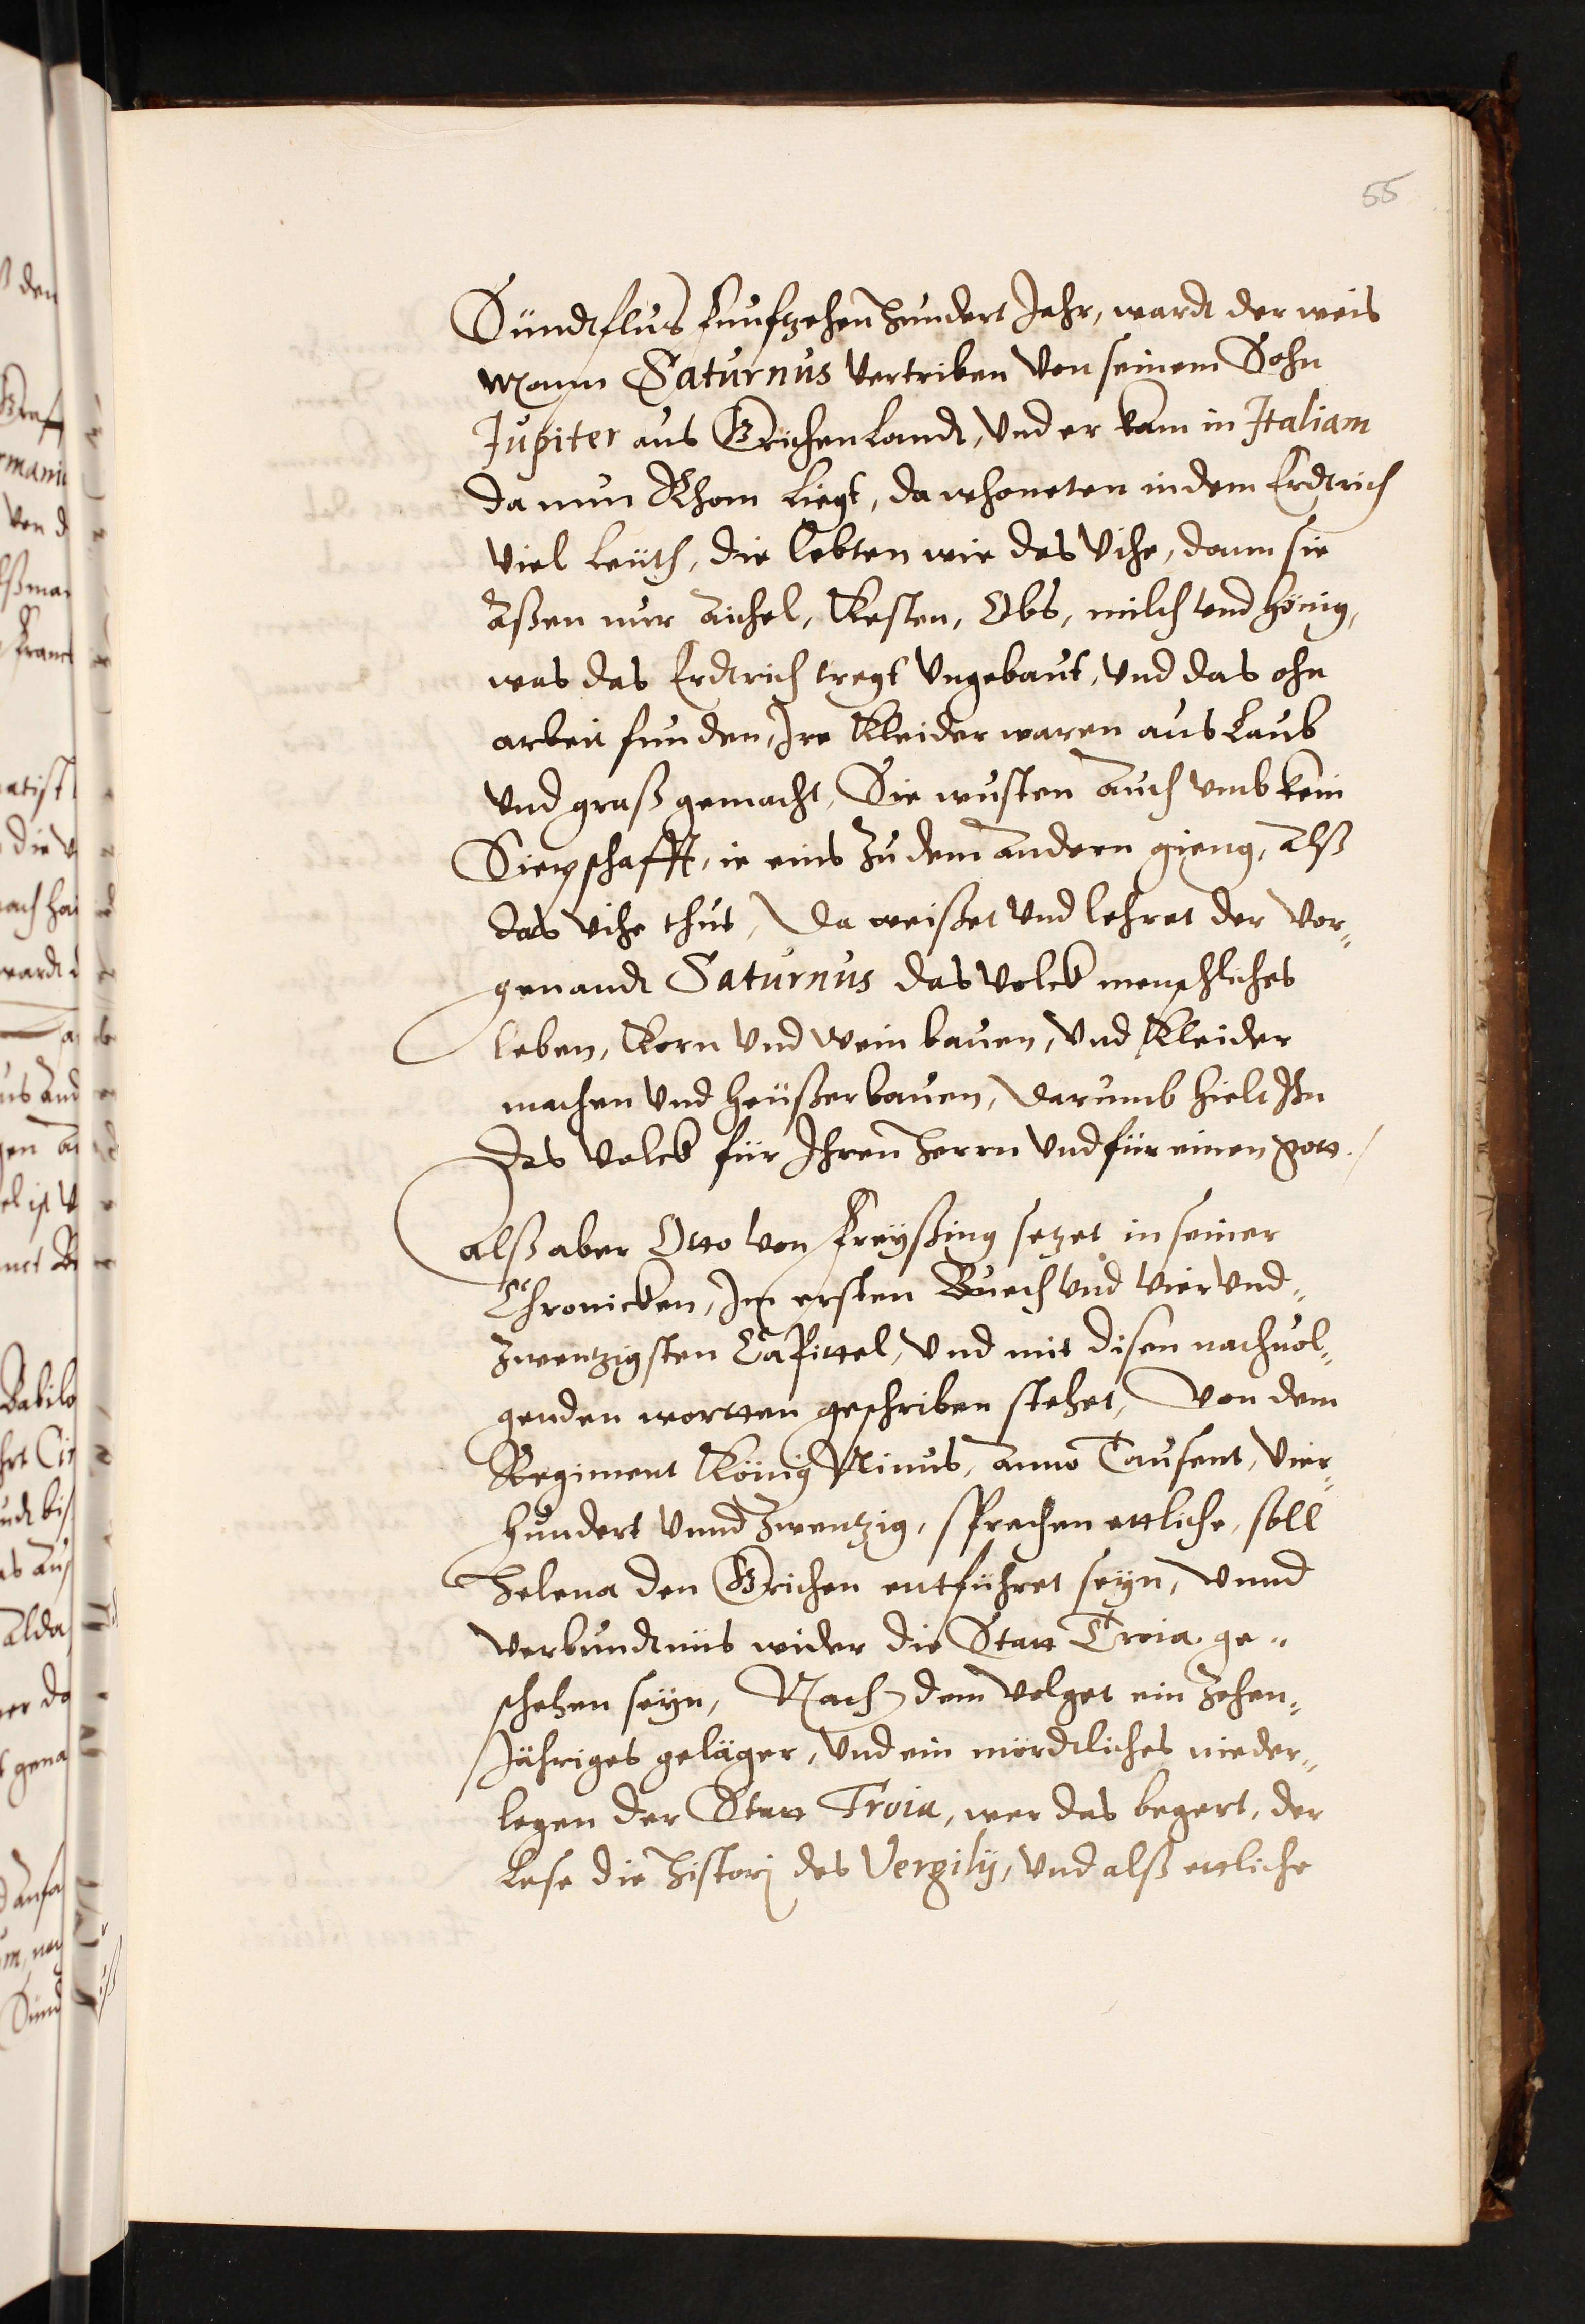 55
Sündtflus funftzehen hundert Jahr, wardt der weis
Mann Saturnus vertriben von seinem Sohn
Jupiter aus Grichen Landt, und er kam in Italiam
da nun Rhom liegt, da whoneten in dem Erdtrich
viel Leüth, die lebten wie das Vihe, dann sie
assen nur Aichel, Kesten, Obs, milch und hönig,
was das Erdtrich tregt ungebaut, und das ohn
arbeit funden, Ire Kleider waren aus Laub
und graß gemacht, Sie wusten auch umb kein
Siepschafft, ie eins zu dem andern gieng, alß
das vihe thut, Da weißet und lehret der vor„
genandt Saturnus das Volck menschliches
leben, Korn und Wein bauen, und Kleider
machen und heüßer bauen, Darumb hielt Ihn
das Volck für Ihren Herrn und für einen gott.
alß aber Otto von Freyßing setzet in seiner
Chronicken, Im ersten Buech und vier und„
zwentzigsten Capittel, und mit disen nachuol„
genden wortten geschriben stehet, Von dem
Regiment König Ninus, anno Tausent, vier„
hundert unnd zwentzig, sprechen ettliche, soll
Helena den Grichen entführet seyn, unnd
Verbundtnüs wider die Statt Troia ge„
schehen seyn, Nach dem volget ein zehen„
Jähriges geläger, und ein mördtliches nieder„
legen der Statt Troia, wer das begert, der
Lese die Histori des Vergilij, und alß ettliche